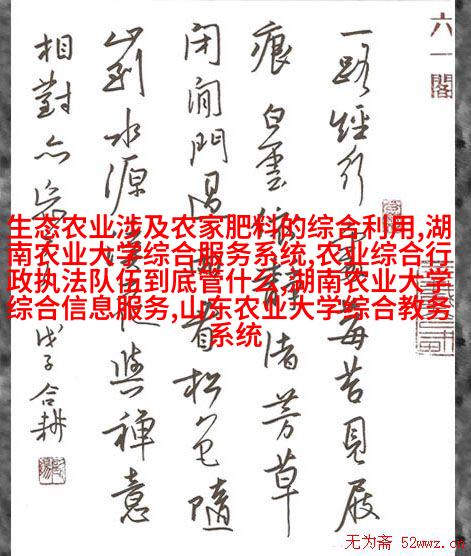 六一閣
一路經行處莓苔見屐
痕白雲依靜渚芳草
閉閒門過雨看松色隨
山到水源溪花與禪意
相對亦忘言
戊子合耕
生态农业涉及农家肥料的综合利用,湖
南农业大学综合服务系统,农业综合行
政执法队伍到底管什么,湖南农业大学
综合信息服务,山东农业大学综合教务
系统
无为斋 52wwz.cn